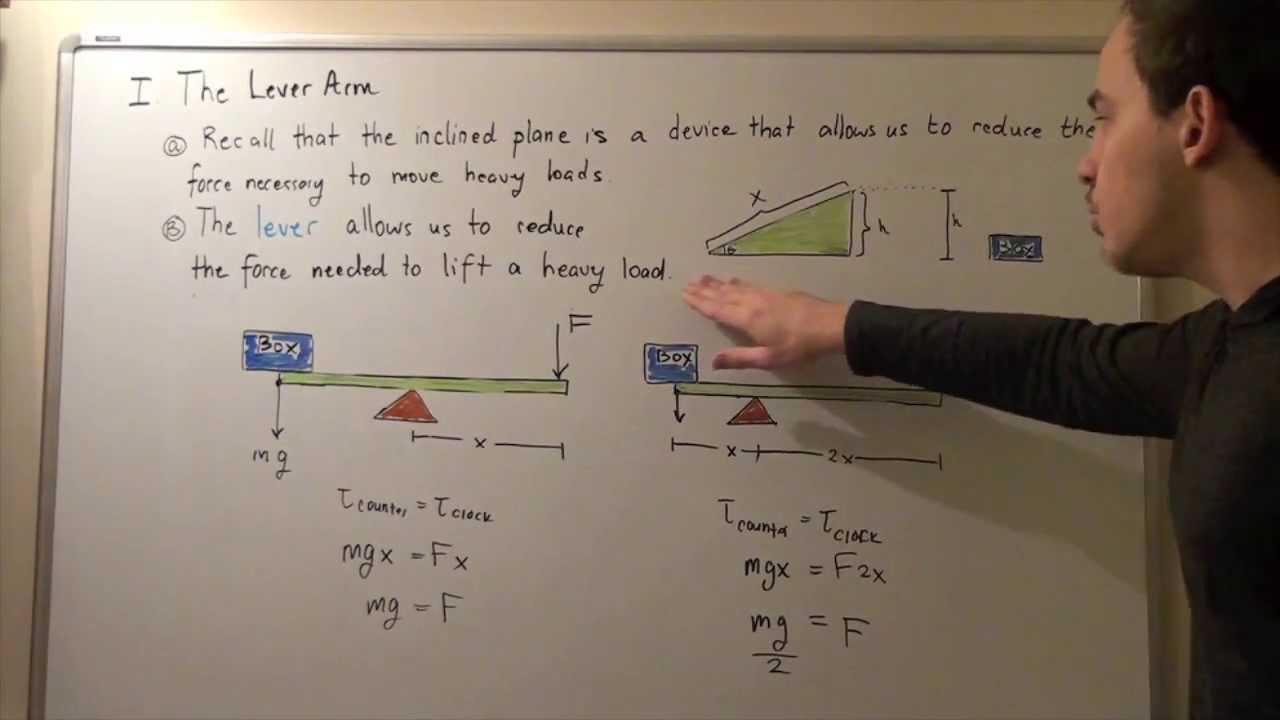 I. The Lever Arm
ⓐ Recall that the inclined plane is a device that allows us to reduce the
force necessary to move heavy loads.
Ⓑ The lever allows us to reduce
the force needed to lift a heavy load.
x
θ
h
h
Box
Box
F
mg
x
Box
x
2x
τcounter = τclock
mgx = Fx
mg = F
τcounter = τclock
mgx = F2x
mg/2 = F